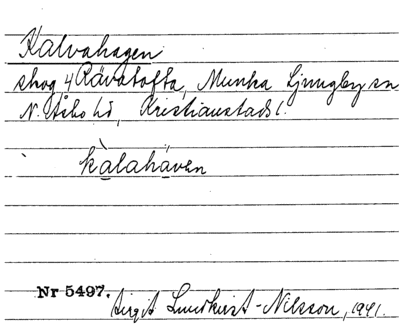 Kalvahagen
skog, 4 Rävatofta, Munka Ljungby sn
N. Åsbo hd, Kristianstads l.
kàlahäven
Nr 5497. Birgit Lundkvist-Nilsson, 1941.